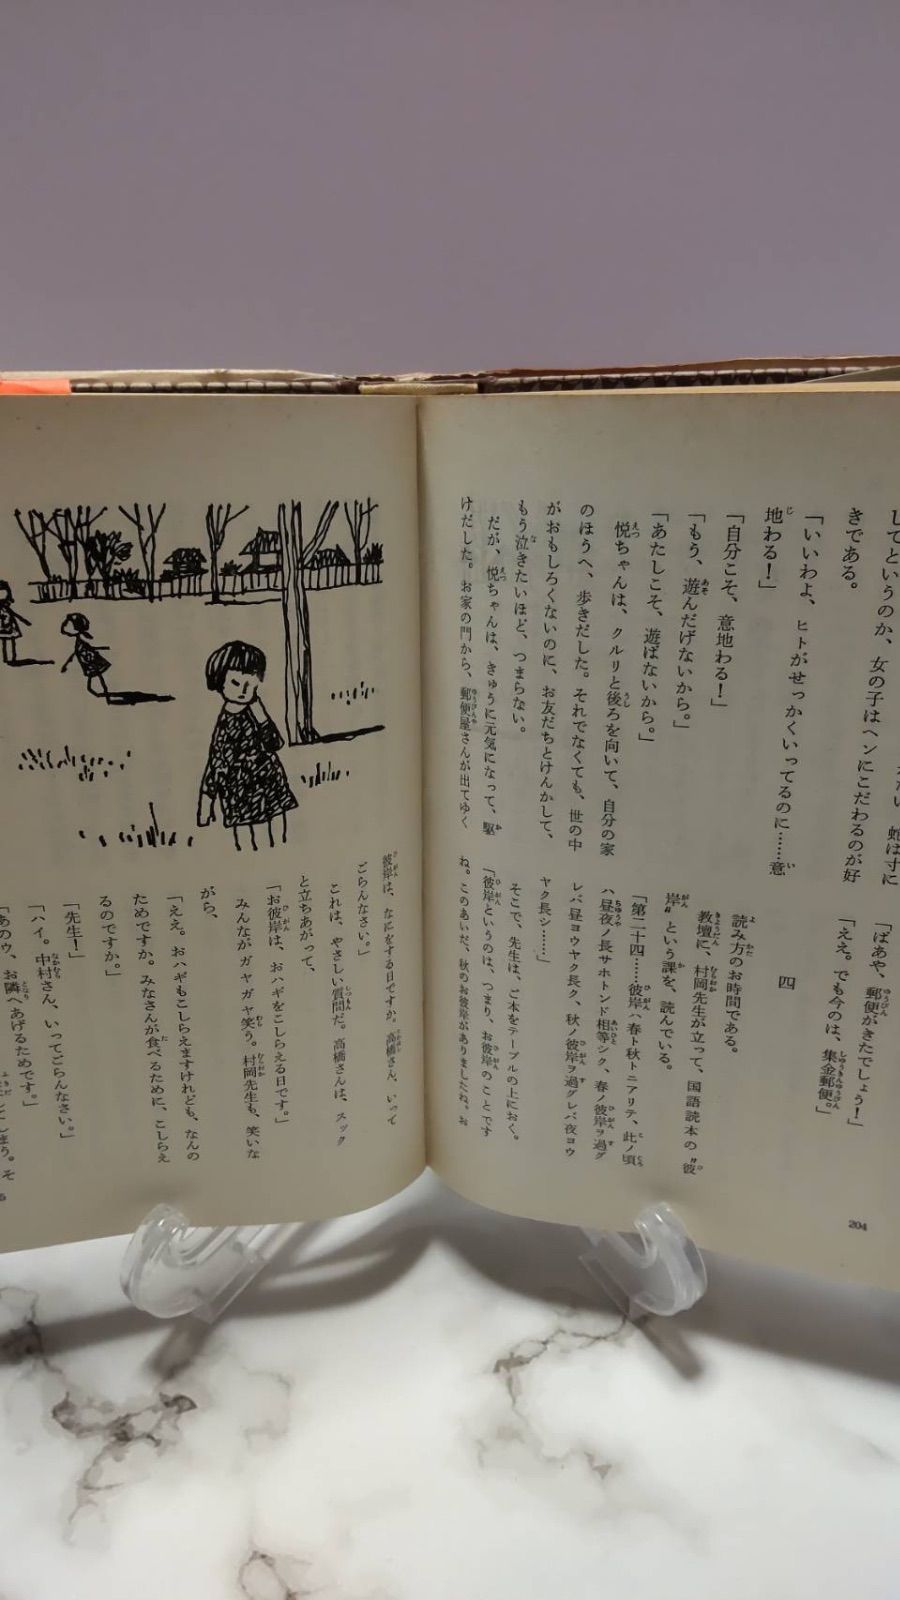 してというのか、女の子はヘンにこだわるのが好
きである。
「いいわよ、ヒトがせっかくいってるのに……意
地わる！」
「自分こそ、意地わる！」
「もう、遊んだげないから。」
「あたしこそ、遊ばないから。」
悦ちゃんは、クルリと後ろを向いて、自分の家
のほうへ、歩きだした。それでなくても、世の中
がおもしろくないのに、お友だちとけんかして、
もう泣きたいほど、つまらない。
だが、悦ちゃんは、きゅうに元気になって、駆
けだした。お家の門から、郵便屋さんが出てゆく
「ばあや、郵便がきたでしょう！」
「ええ。でも今のは、集金郵便。」
四
読み方のお時間である。
教壇に、村岡先生が立って、国語読本の〝彼
岸〟という課を、読んでいる。
「第二十四……彼岸ハ春ト秋トニアリテ、此ノ頃
ハ昼夜ノ長サホトンド相等シク、春ノ彼岸ヲ過グ
レバ昼ヨウヤク長ク、秋ノ彼岸ヲ過グレバ夜ヨウ
ヤク長シ……」
そこで、先生は、ご本をテーブルの上におく。
「彼岸というのは、つまり、お彼岸のことです
ね。このあいだ、秋のお彼岸がありましたね。お
204
彼岸は、なにをする日ですか。高橋さん、いって
ごらんなさい。」
これは、やさしい質問だ。高橋さんは、スック
と立ちあがって、
「お彼岸は、おハギをこしらえる日です。」
みんながガヤガヤ笑う。村岡先生も、笑いな
がら、
「ええ。おハギもこしらえますけれども、なんの
ためですか。みなさんが食べるために、こしらえ
るのですか。」
「先生！」
「ハイ。中村さん、いってごらんなさい。」
「あのゥ、お隣へあげるためです。」